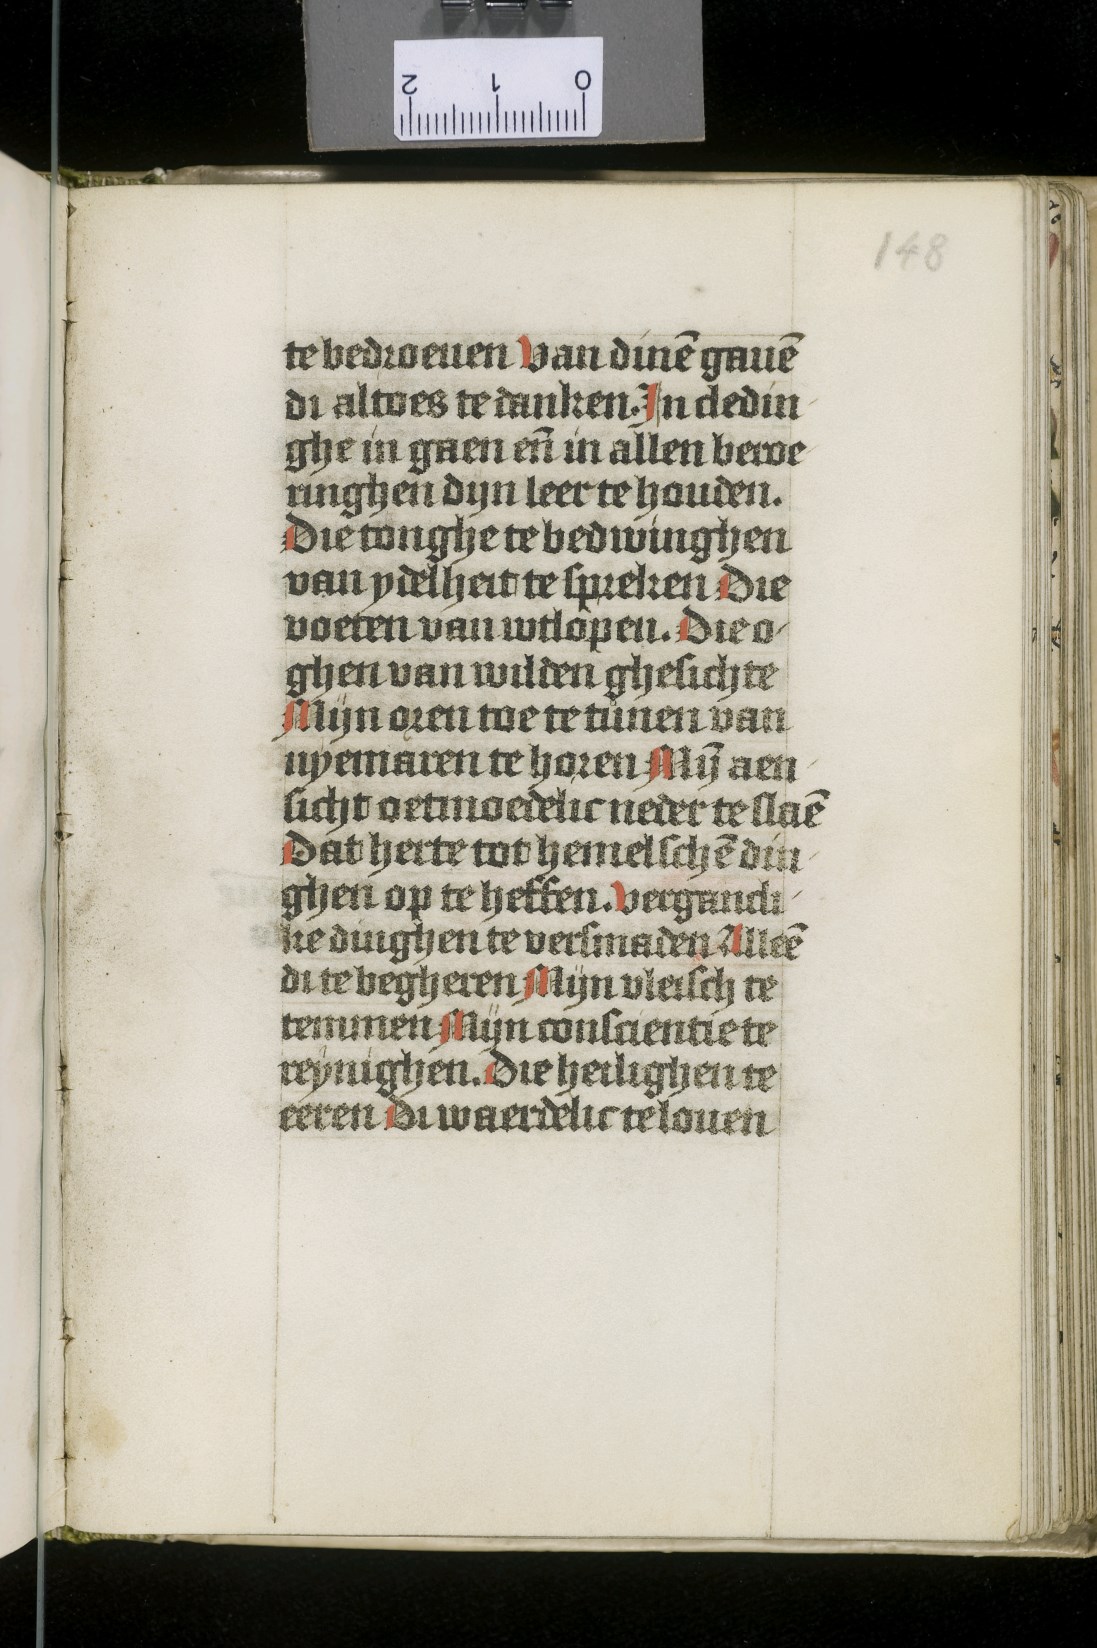 148
te bedroeuen Van dinē gauē
di altoes te danken. In cledin
ghe in gaen en̄ in allen beroe
ringhen dyn leer te houden.
Die tonghe te bedwinghen
van ydelheit te spreken Die
voeten van wtlopen. Die o
ghen van wilden ghesichte
Mijn oren toe te tunen van
nyemaren te horen Mij̄ aen
sicht oetmoedelic neder te slaē
Dat herte tot hemelschē din
ghen op te heffen. Vergancli
ke dinghen te versmaden Alleē
di te begheren Mijn vleisch te
temmen Mijn consciencie te
reynighen. Die heilighen te
eeren Di waerdelic te louen
0 1 2